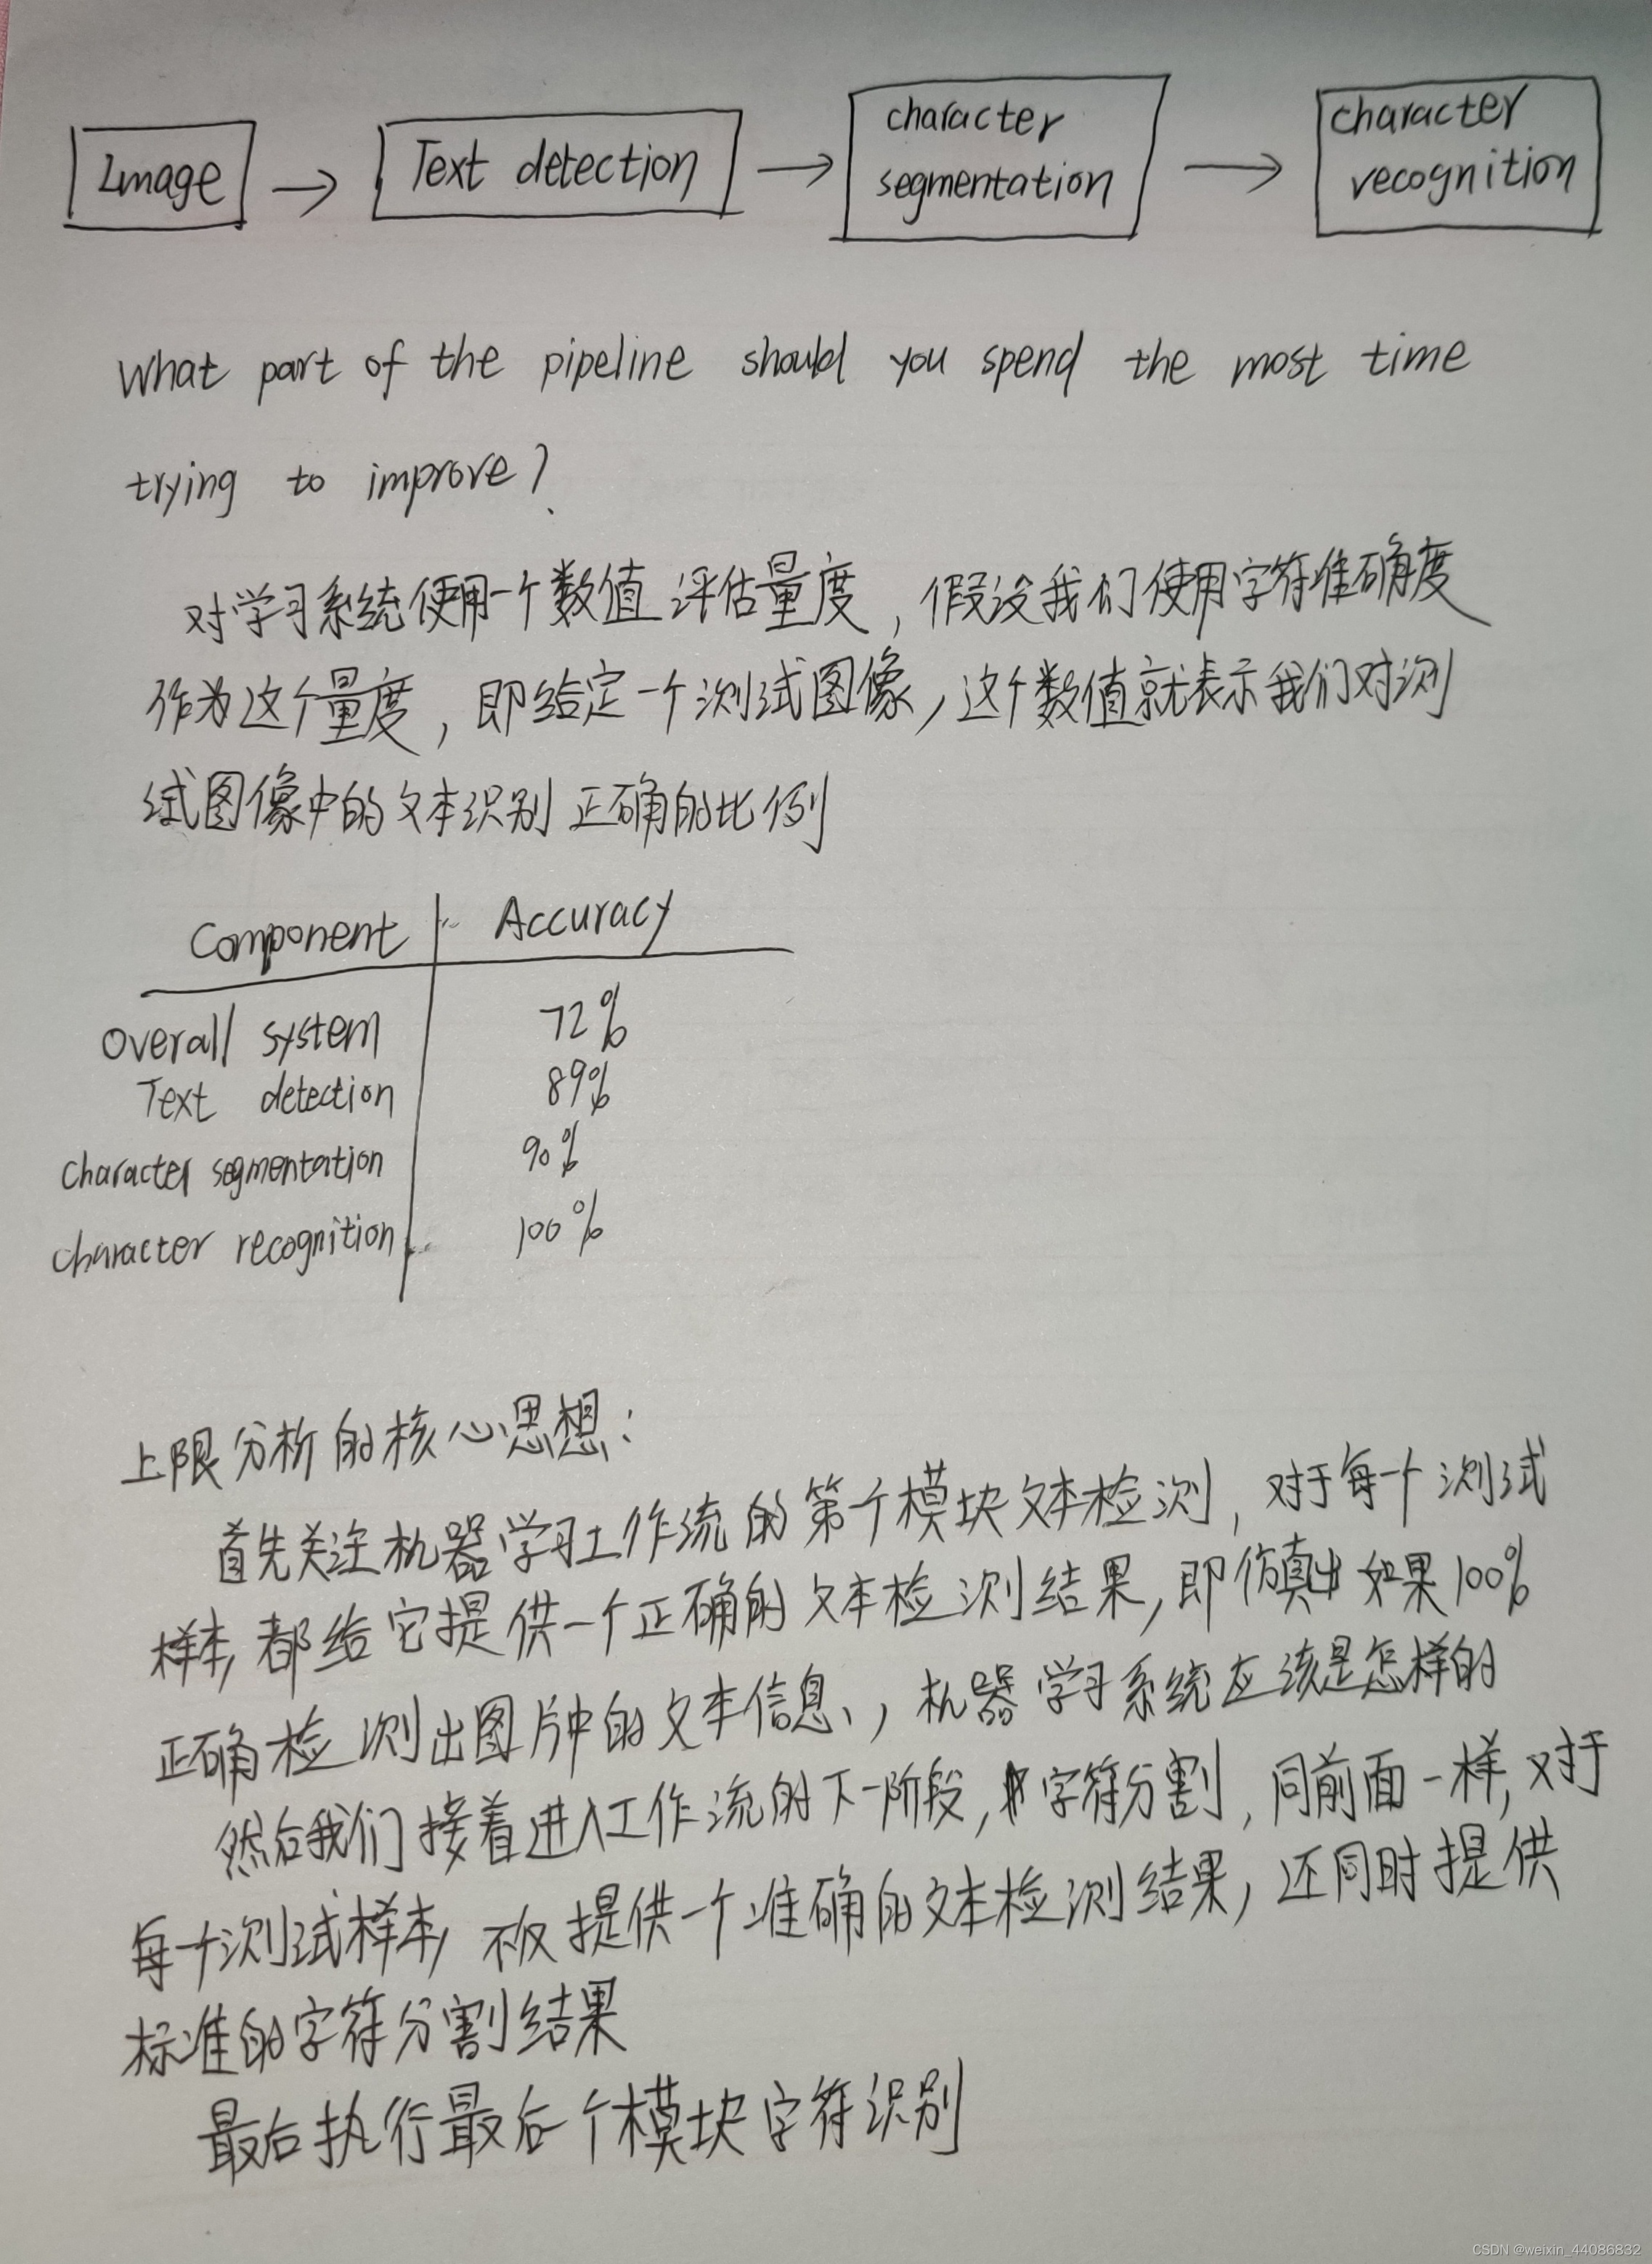 Image → Text detection → character segmentation → character recognition
What part of the pipeline should you spend the most time
trying to improve?
对学习系统使用一个数值评估量度，假设我们使用字符准确度
作为这个量度，即给定一个测试图像，这个数值就表示我们对测
试图像中的文本识别正确的比例
Component Accuracy
Overall system 72%
Text detection 89%
Character segmentation 90%
Character recognition 100%
上限分析的核心思想：
首先关注机器学习工作流的第个模块文本检测，对于每个测试
样本，都给它提供一个正确的文本检测结果，即仿真出如果100%
正确检测出图片中的文本信息，，机器学习系统应该是怎样的
然后我们接着进入工作流的下一阶段，字符分割，同前面一样，对于
每个测试样本，不仅提供一个准确的文本检测结果，还同时提供
标准的字符分割结果
最后执行最后个模块字符识别
CSDN @weixin_44086832